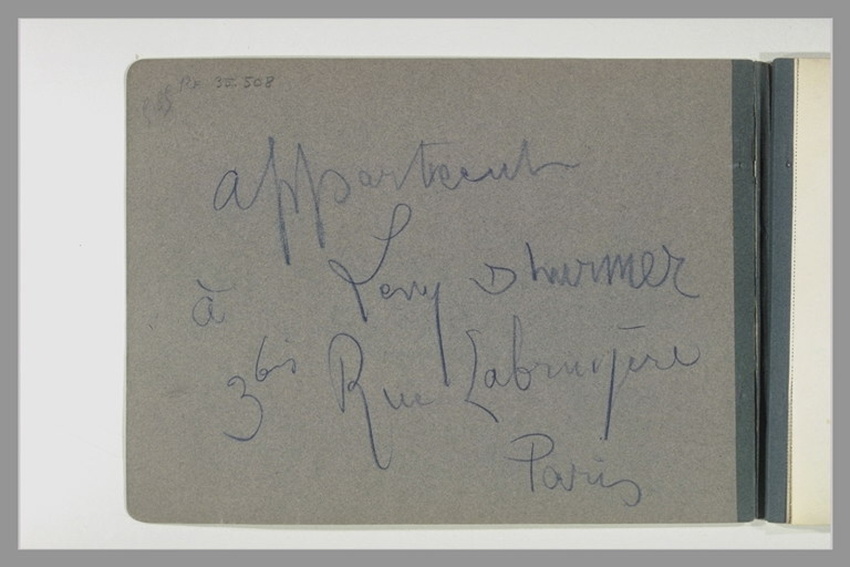 RF 35.508
appartient
à Levy Dhurmer
3bis Rue Labruyère
Paris